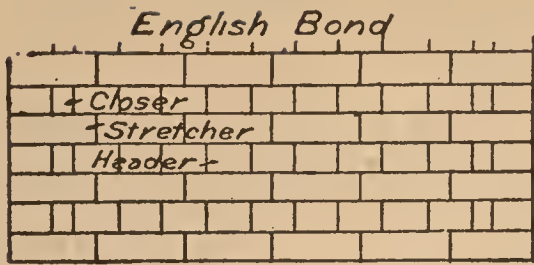 English Bond
Closer
Stretcher
Header